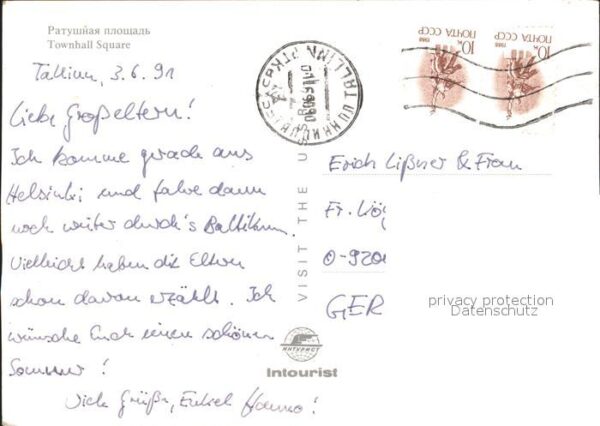 Ратушная площадь
Townhall Square
Tallinn, 3.6.91
Liebe Großeltern!
Ich komme gerade aus
Helsinki und fahre dann
noch weiter durch's Baltikum.
Vielleicht haben die Eltern
schon davon erzählt. Ich
wünsche Euch einen schönen
Sommer!
Viele Grüße, Enkel Hanno!
VISIT THE U
ИНТУРИСТ
Intourist
TALLINN
10к
ПОЧТА СССР
1988
10к
ПОЧТА СССР
1988
Erich Lißner & Frau
Fr.
O-920
GER
privacy protection
Datenschutz